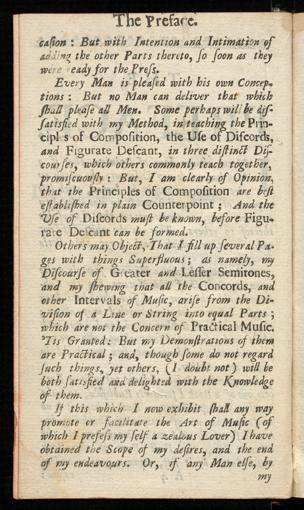 The Preface.
casion : But with Intention and Intimation of
adding the other Parts thereto, so soon as they
were ready for the Press.
Every Man is pleased with his own Concep-
tions : But no Man can deliver that which
shall please all Men. Some perhaps will be dis-
satisfied with my Method, in teaching the Prin-
ciples of Composition, the Use of Discords,
and Figurate Descant, in three distinct Dis-
courses, which others commonly teach together,
promiscuously : But, I am clearly of Opinion,
that the Principles of Composition are best
established in plain Counterpoint ; And the
Use of Discords must be known, before Figu-
rate Descant can be formed.
Others may Object, That I fill up several Pa-
ges with things Superfluous ; as namely, my
Discourse of Greater and Lesser Semitones,
and my shewing that all the Concords, and
other Intervals of Music, arise from the Di-
vision of a Line or String into equal Parts ;
which are not the Concern of Practical Music.
'Tis Granted : But my Demonstrations of them
are Practical ; and, though some do not regard
such things, yet others, ( I doubt not ) will be
both satisfied and delighted with the Knowledge
of them.
If this which I now exhibit shall any way
promote or facilitate the Art of Music (of
which I profess my self a zealous Lover) I have
obtained the Scope of my desires, and the end
of my endeavours. Or, if any Man else, by
my